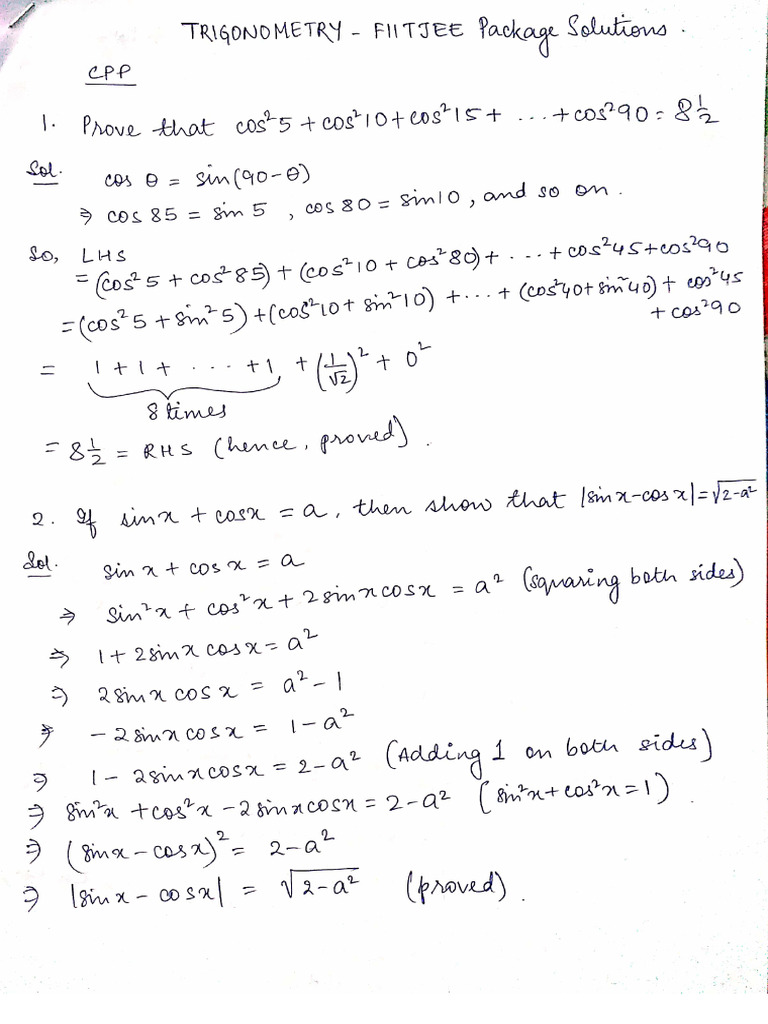 TRIGONOMETRY - FIITJEE Package Solutions.
CPP
1. Prove that cos²5 + cos²10 + cos²15 + ... + cos²90 = 8 1/2
Sol. cos θ = sin(90-θ)
⇒ cos 85 = sin 5, cos 80 = sin10, and so on.
So, LHS
= (cos²5 + cos²85) + (cos²10 + cos²80) + ... + cos²45 + cos²90
= (cos²5 + sin²5) + (cos²10 + sin²10) + ... + (cos²40 + sin²40) + cos²45
+ cos²90
= 1 + 1 + ... + 1 + (1/√2)² + 0²
8 times
= 8 1/2 = RHS (hence, proved).
2. If sinx + cosx = a, then show that |sinx-cosx| = √2-a²
Sol. sin x + cos x = a
⇒ sin²x + cos²x + 2sinxcosx = a² (squaring both sides)
⇒ 1 + 2sinx cosx = a²
⇒ 2sinx cosx = a² - 1
⇒ -2sinxcosx = 1 - a²
⇒ 1 - 2sinxcosx = 2 - a² (Adding 1 on both sides)
⇒ sin²x + cos²x - 2sinxcosx = 2 - a² (sin²x + cos²x = 1).
⇒ (sinx - cosx)² = 2 - a²
⇒ |sinx - cosx| = √2-a² (proved).